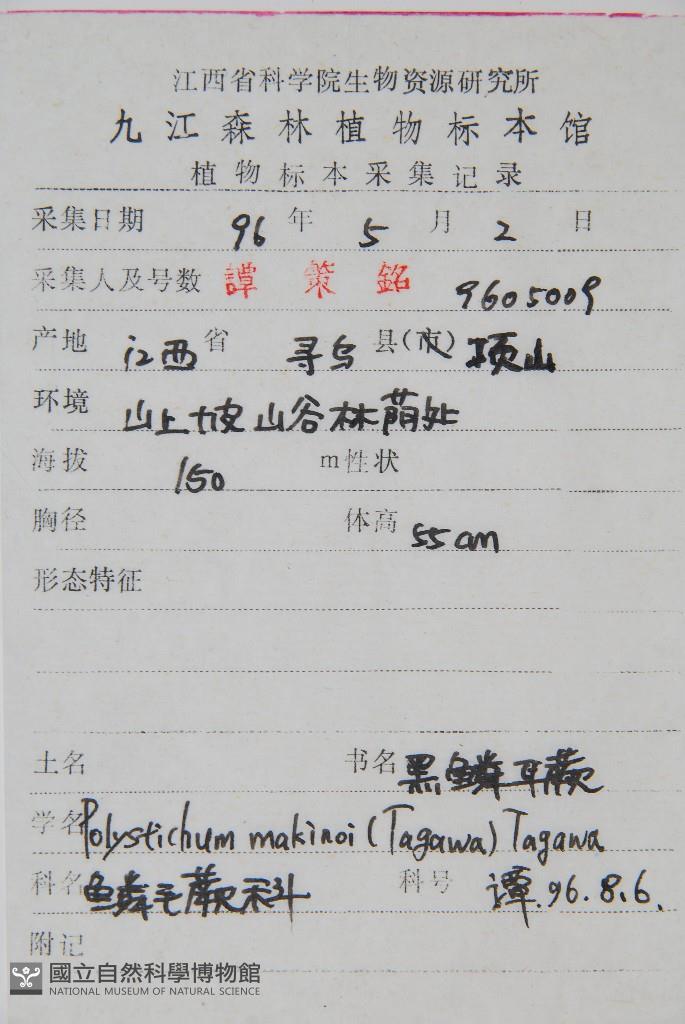 江西省科学院生物资源研究所
九江森林植物标本馆
植物标本采集记录
采集日期 96 年 5 月 2 日
采集人及号数 譚策銘 9605009
产地 江西省 寻乌 县(市) 项山
环境 山上坡山谷林荫处
海拔 150 m 性状
胸径 体高 55cm
形态特征
土名 书名 黑鳞耳蕨
学名 Polystichum makinoi (Tagawa) Tagawa
科名 鳞毛蕨科 科号 谭.96.8.6.
附记
國立自然科學博物館
NATIONAL MUSEUM OF NATURAL SCIENCE